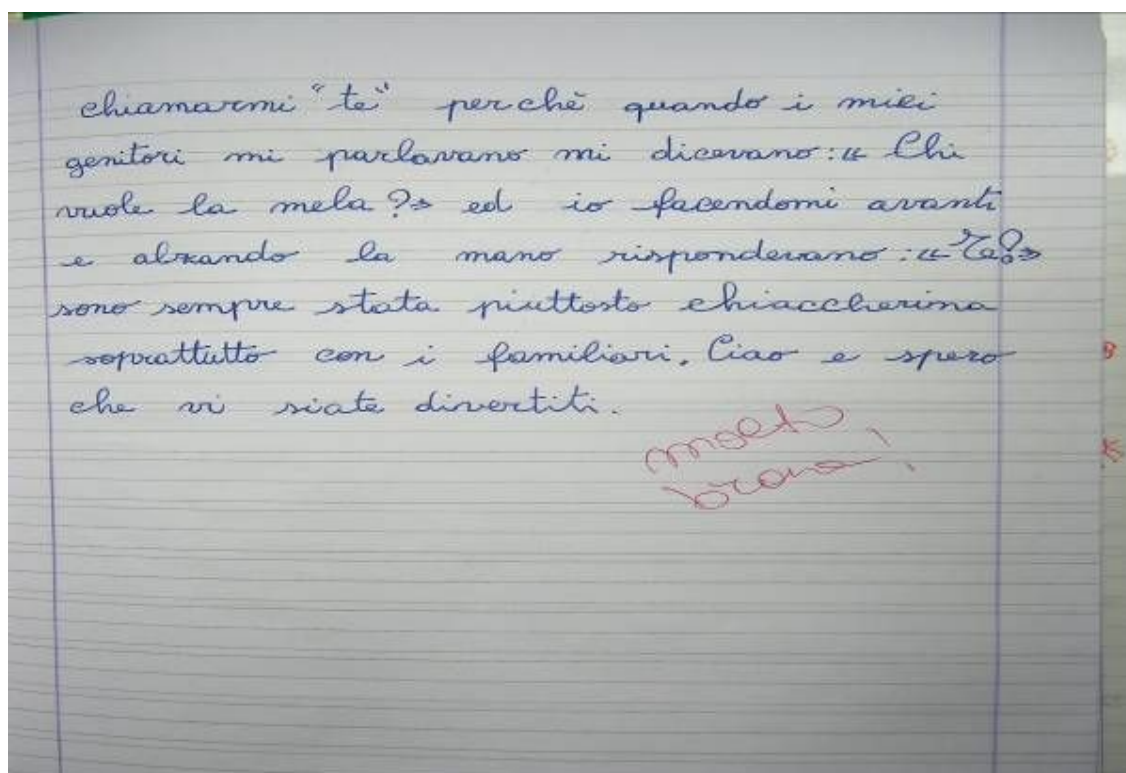 chiamarmi "te" perchè quando i miei
genitori mi parlavano mi dicevano: « Chi
vuole la mela ?» ed io facendomi avanti
e alzando la mano rispondevano: « Te?»
sono sempre stata piuttosto chiaccherina
soprattutto con i familiari. Ciao e spero
che vi siate divertiti.
molto
brava!